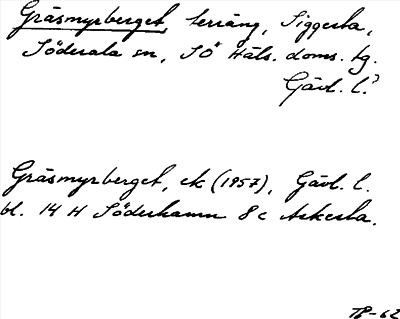 Gräsmyrberget, terräng, Siggesta,
Söderala sn, SÖ Häls. doms. tg.
Gävl. l.?
Gräsmyrberget, ek (1957), Gävl. l.
bl. 14 H Söderhamn 8 c Askesta.
TB-62